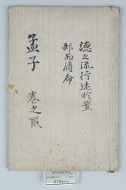 德之流行速於置
郵而傳命
孟子 卷之貳